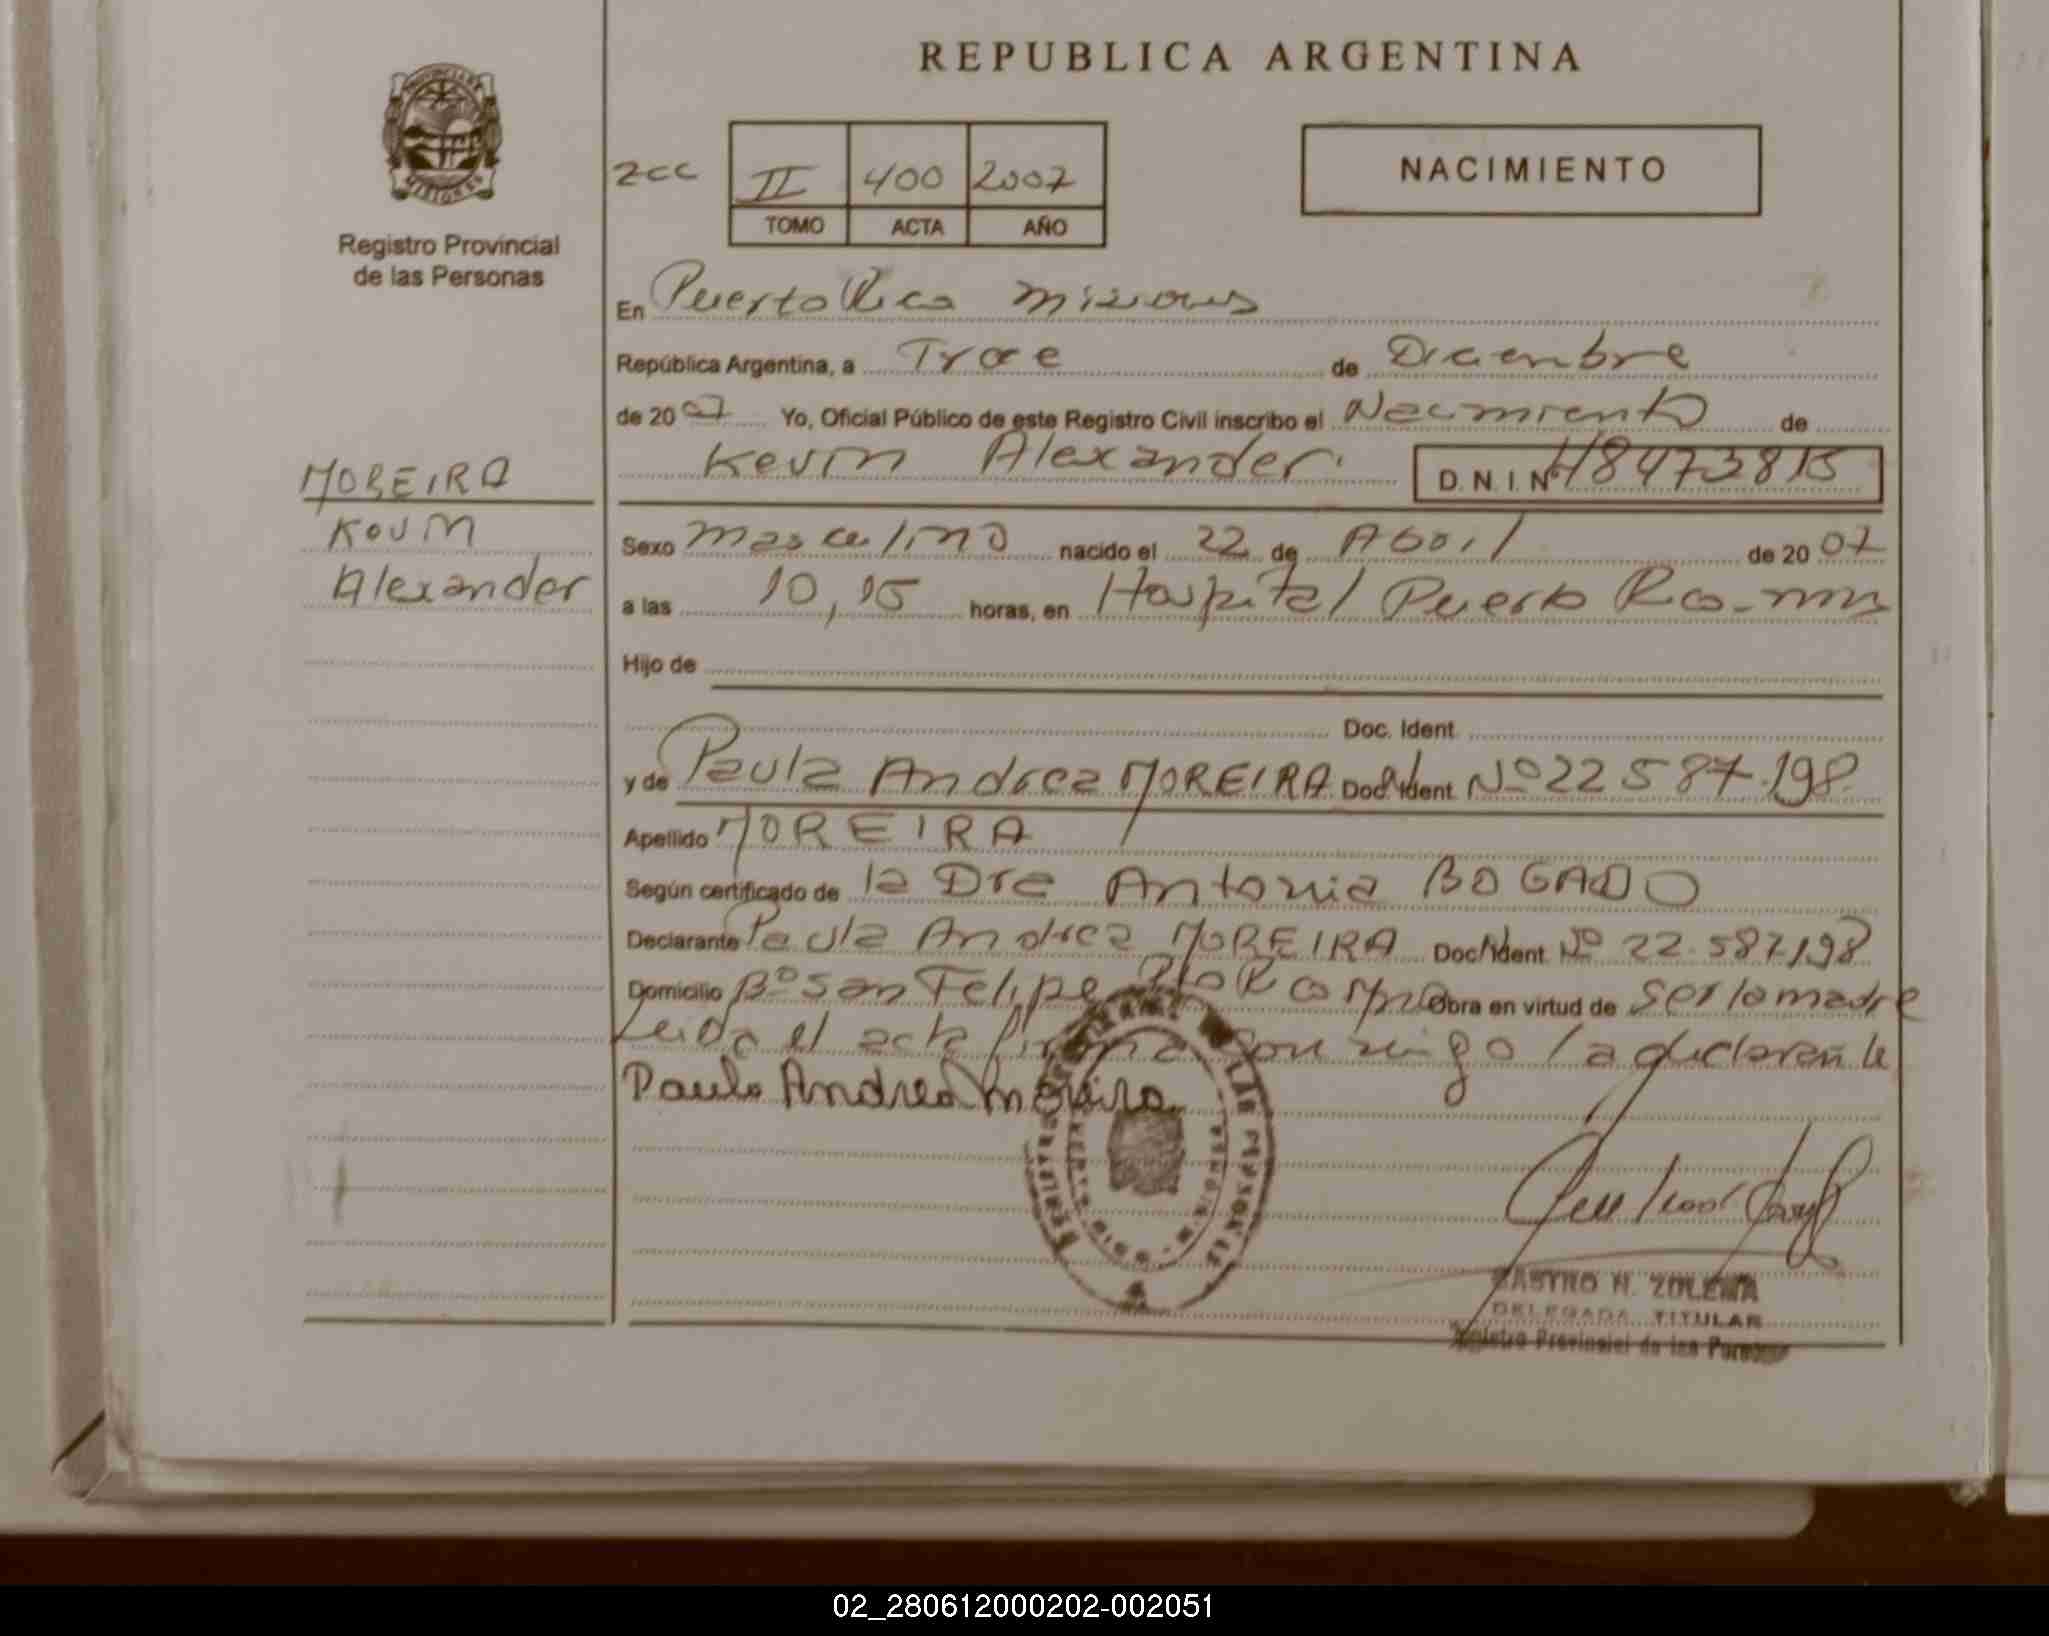 REPUBLICA ARGENTINA
PROVINCIA DE
MISIONES
Registro Provincial
de las Personas
ZCC II 400 2007
TOMO ACTA AÑO
NACIMIENTO
En Puerto Rico Misiones
República Argentina, a Trece de Diciembre
de 2007 Yo, Oficial Público de este Registro Civil inscribo el Nacimiento de
Kevin Alexander. D.N.I. Nº 48473815
MOREIRA
Kevin
Alexander
Sexo Masculino nacido el 22 de Abril de 2007
a las 10,15 horas, en Hospital Puerto Rico - Mnes
Hijo de
Doc. Ident.
y de Paula Andrea MOREIRA Doc. Ident. Nº 22 587.198.
Apellido MOREIRA
Según certificado de la Dra Antonia BOGADO
Declarante Paula Andrea MOREIRA Doc. Ident. Nº 22.587.198
Domicilio Bº San Felipe Pto Rico Mnes Obra en virtud de ser la madre
Leida el acta firma conmigo la declarante
Paula Andrea Moreira
CASTRO N. ZULEMA
DELEGADA TITULAR
Registro Provincial de las Personas
02_280612000202-002051